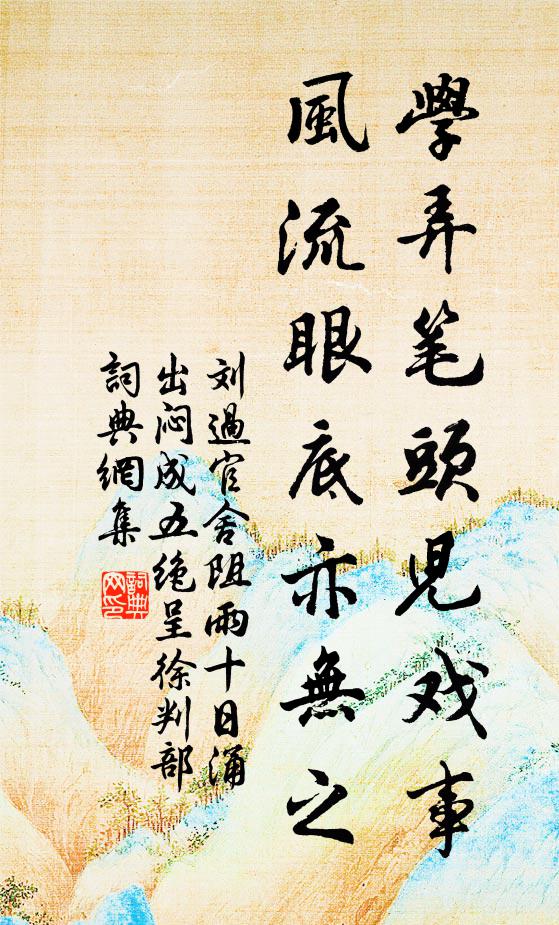 學弄笔頭児戏事
風流眼底亦無之
刘過官舍阻雨十日涌
出闷成五绝呈徐判部
詞典網集
詞典
网印